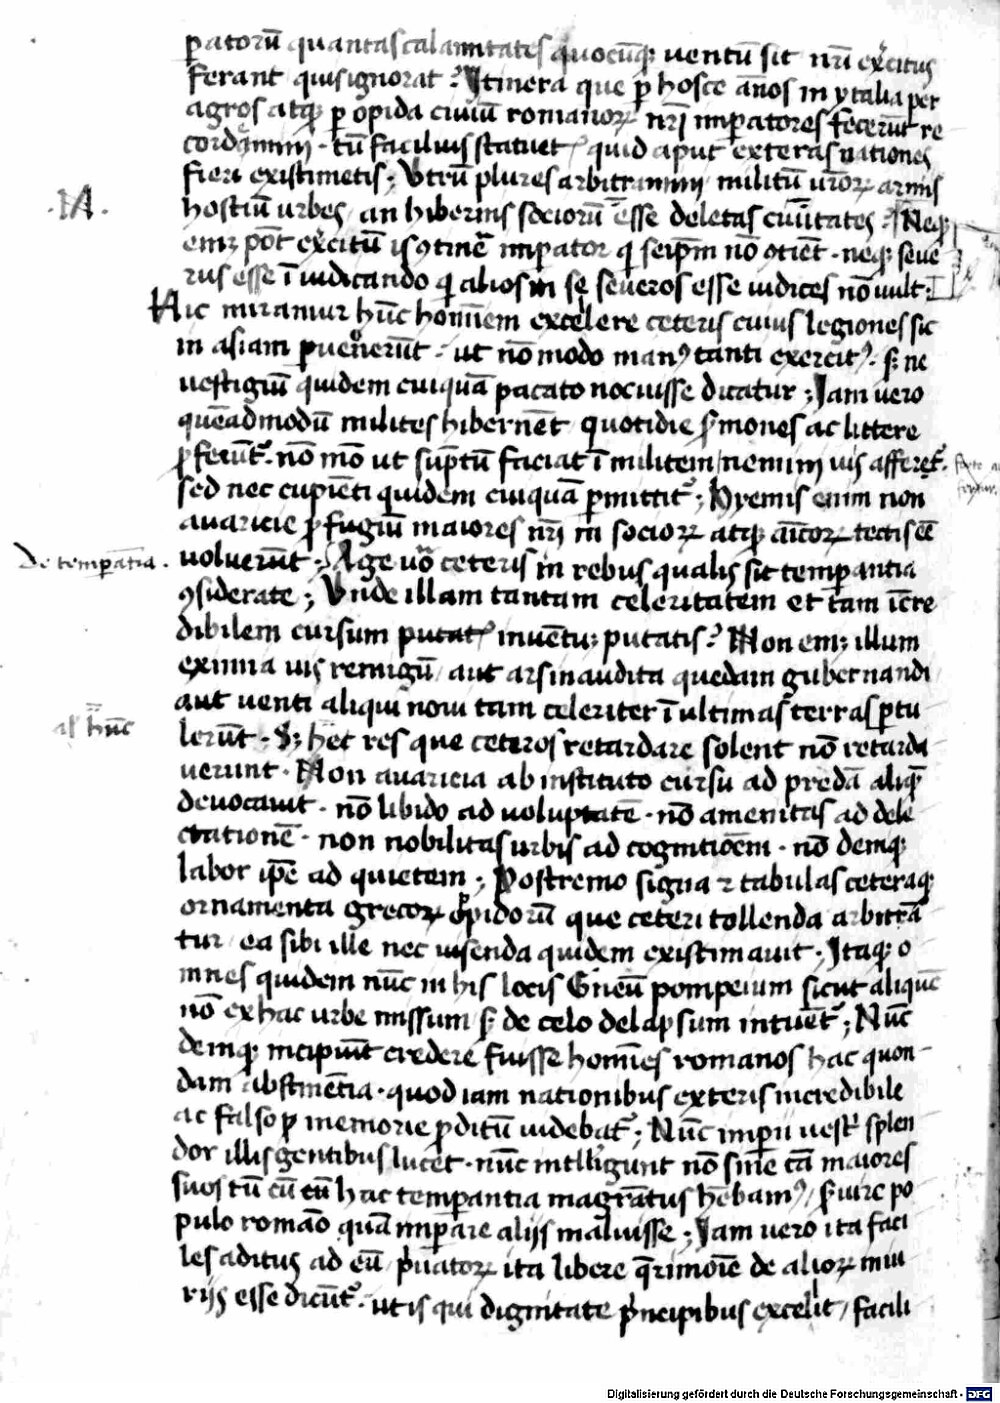 patorū quantas calamitates quocūq; ventū sit nr̄i exercitus
ferant quis ignorat? Itinera que p hosce annos in ytalia per
agros atq; p opida ciuiū romanorꝝ nr̄i impatores fecerūt re
cordamini · tū facilius statuet quid aput exteras nationes
fieri existimetis; Vtrū plures arbitramini militū vr̄orꝝ armis
.NA.
hostiū urbes / an hibernis sociorū esse deletas ciuitates · Neq;
eni pōt exercitū is ꝯtinē impator q seipm nō ꝯtiēt · neq; seue
rus esse ī iudicando q alios in se seueros esse iudices nō uult:
Hic miramur hūc hominem excelere ceteris cuius legiones sic
in asiam puenerūt · ut nō modo manꝰ tanti exercitꝰ · s; ne
uestigiū quidem cuiquā pacato nocuisse dicatur; Jam vero
quēadmodū milites hibernēt quotidie sermones ac littere
pferūt~. nō mō ut sūptū faciat ī militem / nemini uis afferet~.
sed nec cupiēti quidem cuiquā pmittit~; Hyemis enim non
auaricie pfugiū maiores nr̄i in sociorꝝ atq; aīcorꝝ tectis eē
De tempātia.
uoluerūt; Age uō ceteris in rebus qualis sit tempantia
ꝯsiderate; Vnde illam tantam celeritatem et tam īcre
dibilem cursum putat~ inuētū putatis? Non eni illum
eximia uis remigū / aut ars inaudita quedam gubernandi
aut venti aliqui noui tam celeriter ī ultimas terras ptu
al hūc
lerūt · S; hec res que ceteros retardare solent nō retarda
uerunt · Non auaricia ab instituto cursu ad predā aliquā
deuocauit · nō libido ad uoluptatē · nō amenitas ad dele
ctationē · non nobilitas urbis ad cognitioēm · nō deniq;
labor ipē ad quietem; Postremo signa ⁊ tabulas ceteraq;
ornamenta grecorꝝ opidorū que ceteri tollenda arbitrā
tur / ea sibi ille nec uisenda quidem existimauit · Itaq; o
mnes quidem nūc in his locis Gneū pompeium sicut aliquē
nō ex hac urbe missum / s; de celo delapsum intuēt~; Nūc
deniq; incipiūt credere fuisse homīes romanos hac quon-
dam abstinētia · quod iam nationibus exteris incredibile
ac falso p memorie pditū uidebat~; Nūc imperii uestri splen
dor illis gentibus lucet · nūc intelligunt nō sine cā maiores
suos tū cū hac tempantia magratus hēbamꝰ / seruire po
pulo romāo quā impare alijs maluisse; Jam vero ita faci
les aditus ad eū priuatorꝝ ita libere q̄rimoīe de aliorꝝ iniu
rijs esse dicūt~. ut is qui dignitate principibus excelit / facili
Digitalisierung gefördert durch die Deutsche Forschungsgemeinschaft - DFG